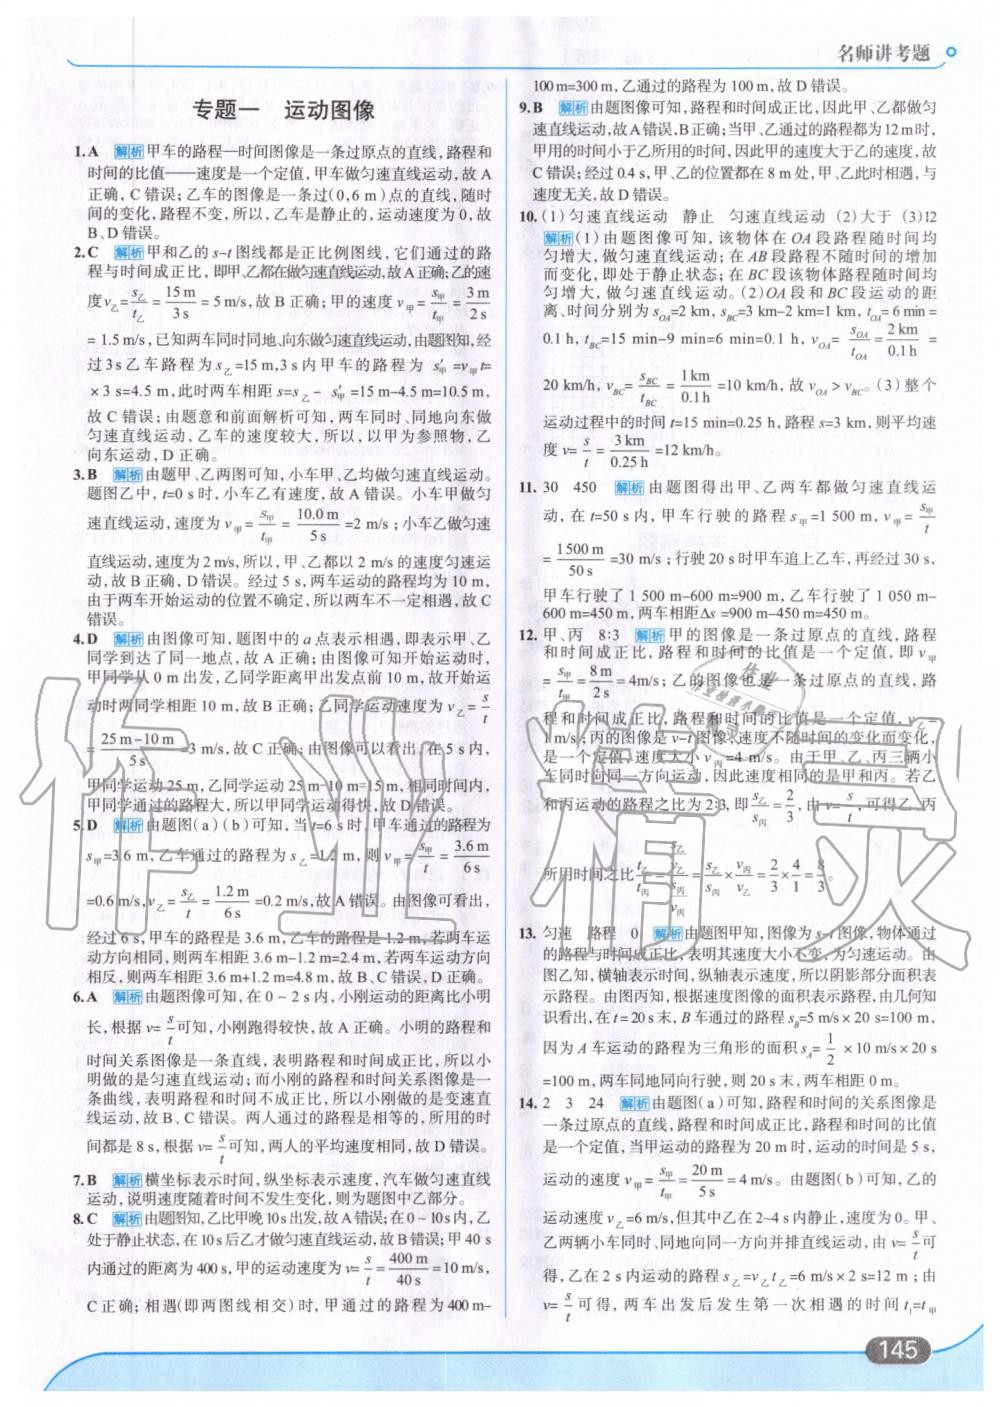 名师讲考题
专题一 运动图像
1.A 解析 甲车的路程—时间图像是一条过原点的直线,路程和
时间的比值——速度是一个定值,甲车做匀速直线运动,故A
正确,C错误;乙车的图像是一条过(0,6 m)点的直线,随时
间的变化,路程不变,所以,乙车是静止的,运动速度为0,故
B、D错误。
2.C 解析 甲和乙的s-t图线都是正比例图线,它们通过的路
程与时间成正比,即甲、乙都在做匀速直线运动,故A正确;乙的速
度v乙=s乙/t乙=15 m/3 s=5 m/s,故B正确;甲的速度v甲=s甲/t甲=3 m/2 s
=1.5 m/s,已知两车同时同地、向东做匀速直线运动,由题图知,经
过3 s乙车路程为s乙=15 m,3 s内甲车的路程为 s′甲=v甲t=
×3 s=4.5 m,此时两车相距s=s乙- s′甲=15 m-4.5 m=10.5 m,
故C错误;由题意和前面解析可知,两车同时、同地向东做
匀速直线运动,乙车的速度较大,所以,以甲为参照物,乙
向东运动,D正确。
3.B 解析 由题甲、乙两图可知,小车甲、乙均做匀速直线运动。
题图乙中,t=0 s时,小车乙有速度,故A错误。小车甲做匀
速直线运动,速度为v甲=s甲/t甲=10.0 m/5 s=2 m/s;小车乙做匀速
直线运动,速度为2 m/s,所以,甲、乙都以2 m/s的速度匀速运
动,故B正确,D错误。经过5 s,两车运动的路程均为10 m,
由于两车开始运动的位置不确定,所以两车不一定相遇,故C
错误。
4.D 解析 由图像可知,题图中的a点表示相遇,即表示甲、乙
同学到达了同一地点,故A正确;由图像可知开始运动时,
甲同学从0 m出发,乙同学距离甲出发点前10 m,故开始运
动时两同学相距10 m,故B正确;乙同学运动速度为v乙=s/t
=25 m-10 m/5 s=3 m/s,故C正确;由图像可以看出,在5 s内,
甲同学运动25 m,乙同学运动25 m-10 m=15 m,相同时间内,
甲同学通过的路程大,所以甲同学运动得快,故D错误。
5.D 解析 由题图(a)(b)可知,当t=6 s时,甲车通过的路程为
s甲=3.6 m,乙车通过的路程为s乙=1.2 m,则v甲=s甲/t=3.6 m/6 s
=0.6 m/s,v乙=s乙/t=1.2 m/6 s=0.2 m/s,故A错误。由图像可看出,
经过6 s,甲车的路程是3.6 m,乙车的路程是1.2 m,若两车运
动方向相同,则两车相距3.6 m-1.2 m=2.4 m,若两车运动方向
相反,则两车相距3.6 m+1.2 m=4.8 m,故B、C错误,D正确。
6.A 解析 由题图像可知,在0~2 s内,小刚运动的距离比小明
长,根据v=s/t可知,小刚跑得较快,故A正确。小明的路程和
时间关系图像是一条直线,表明路程和时间成正比,所以小
明做的是匀速直线运动;而小刚的路程和时间关系图像是一
条曲线,表明路程和时间不成正比,所以小刚做的是变速直
线运动,故B、C错误。两人通过的路程是相等的,所用的时
间都是8 s,根据v=s/t可知,两人的平均速度相同,故D错误。
7.B 解析 横坐标表示时间,纵坐标表示速度,汽车做匀速直线
运动,说明速度随着时间不发生变化,则为题图中乙部分。
8.C 解析 由题图知,乙比甲晚10 s出发,故A错误;在0~10 s内,乙
处于静止状态,在10 s后乙才做匀速直线运动,故B错误;甲40 s
内通过的路程为400 s,甲的运动速度为v=s/t=400 m/40 s=10 m/s,
C正确;相遇(即两图线相交)时,甲通过的路程为400 m-
100 m=300 m,乙通过的路程为100 m,故D错误。
9.B 解析 由题图像可知,路程和时间成正比,因此甲、乙都做匀
速直线运动,故A错误,B正确;当甲、乙通过的路程都为12 m时,
甲用的时间小于乙所用的时间,因此甲的速度大于乙的速度,故
C错误;经过0.4 s,甲、乙的位置都在8 m处,甲、乙此时相遇,与
速度无关,故D错误。
10.(1)匀速直线运动 静止 匀速直线运动 (2)大于 (3)12
解析 (1)由题图像可知,该物体在OA段路程随时间均
匀增大,做匀速直线运动;在AB段路程不随时间的增加
而变化,即处于静止状态;在BC段该物体路程随时间均
匀增大,做匀速直线运动。(2)OA段和BC段运动的距
离、时间分别为sOA=2 km,sBC=3 km-2 km=1 km,tOA=6 min=
0.1 h,tBC=15 min-9 min=6 min=0.1 h,vOA=sOA/tOA=2 km/0.1 h=
20 km/h,vBC=sBC/tBC=1 km/0.1 h=10 km/h,故vOA>vBC。(3)整个
运动过程中的时间t=15 min=0.25 h,路程s=3 km,则平均速
度v=s/t=3 km/0.25 h=12 km/h。
11.30 450 解析 由题图得出甲、乙两车都做匀速直线运
动,在t=50 s内,甲车行驶的路程s甲=1 500 m,v甲=s甲/t
=1500 m/50 s=30 m/s;行驶20 s时甲车追上乙车,再经过30 s,
甲车行驶了1 500 m-600 m=900 m,乙车行驶了1 050 m-
600 m=450 m,两车相距Δs=900 m-450 m=450 m。
12.甲、丙 8:3 解析 甲的图像是一条过原点的直线,路程
和时间成正比,路程和时间的比值是一个定值,即v甲
=s甲/t甲=8 m/2 s=4m/s;乙的图像也是一条过原点的直线,路
程和时间成正比,路程和时间的比值是一个定值,v乙=
1 m/s;丙的图像是v-t图像,速度不随时间的变化而变化,
是一个定值,速度大小v丙=4 m/s。由于甲、乙、丙三辆小
车同时向同一方向运动,因此速度相同的是甲和丙。若乙
和丙运动的路程之比为2:3,即s乙/s丙=2/3,由v=s/t,可得乙、丙
所用时间之比t乙/t丙=(s乙/v乙)/(s丙/v丙)=s乙/s丙×v丙/v乙=2/3×4/1=8/3。
13.匀速 路程 0 解析 由题图甲知,图像为s-t图像,物体通过
的路程与时间成正比,表明其速度大小不变,为匀速运动。由
图乙知,横轴表示时间,纵轴表示速度,所以阴影部分面积表
示路程。由图丙知,根据速度图像的面积表示路程,由几何知
识看出,在t=20 s末,B车通过的路程sB=5 m/s×20 s=100 m,
因为A车运动的路程为三角形的面积sA=1/2×10 m/s×20 s
=100 m,两车同地同向行驶,则20 s末,两车相距0 m。
14.2 3 24 解析 由题图(a)可知,路程和时间的关系图像是
一条过原点的直线,路程和时间成正比,路程和时间的比值
是一个定值,当甲运动的路程为20 m时,运动的时间是5 s,
运动的速度v甲=s甲/t甲=20 m/5 s=4 m/s。由题图(b)可知,乙的
运动速度v乙=6 m/s,但其中乙在2~4 s内静止,速度为0。甲、
乙两辆小车同时、同地向同一方向并排直线运动,由v=s/t可
得,乙在2 s内运动的路程s乙=v乙t乙=6 m/s×2 s=12 m;由
v=s/t可得,两车出发后发生第一次相遇的时间t1=t甲
145
作业精灵